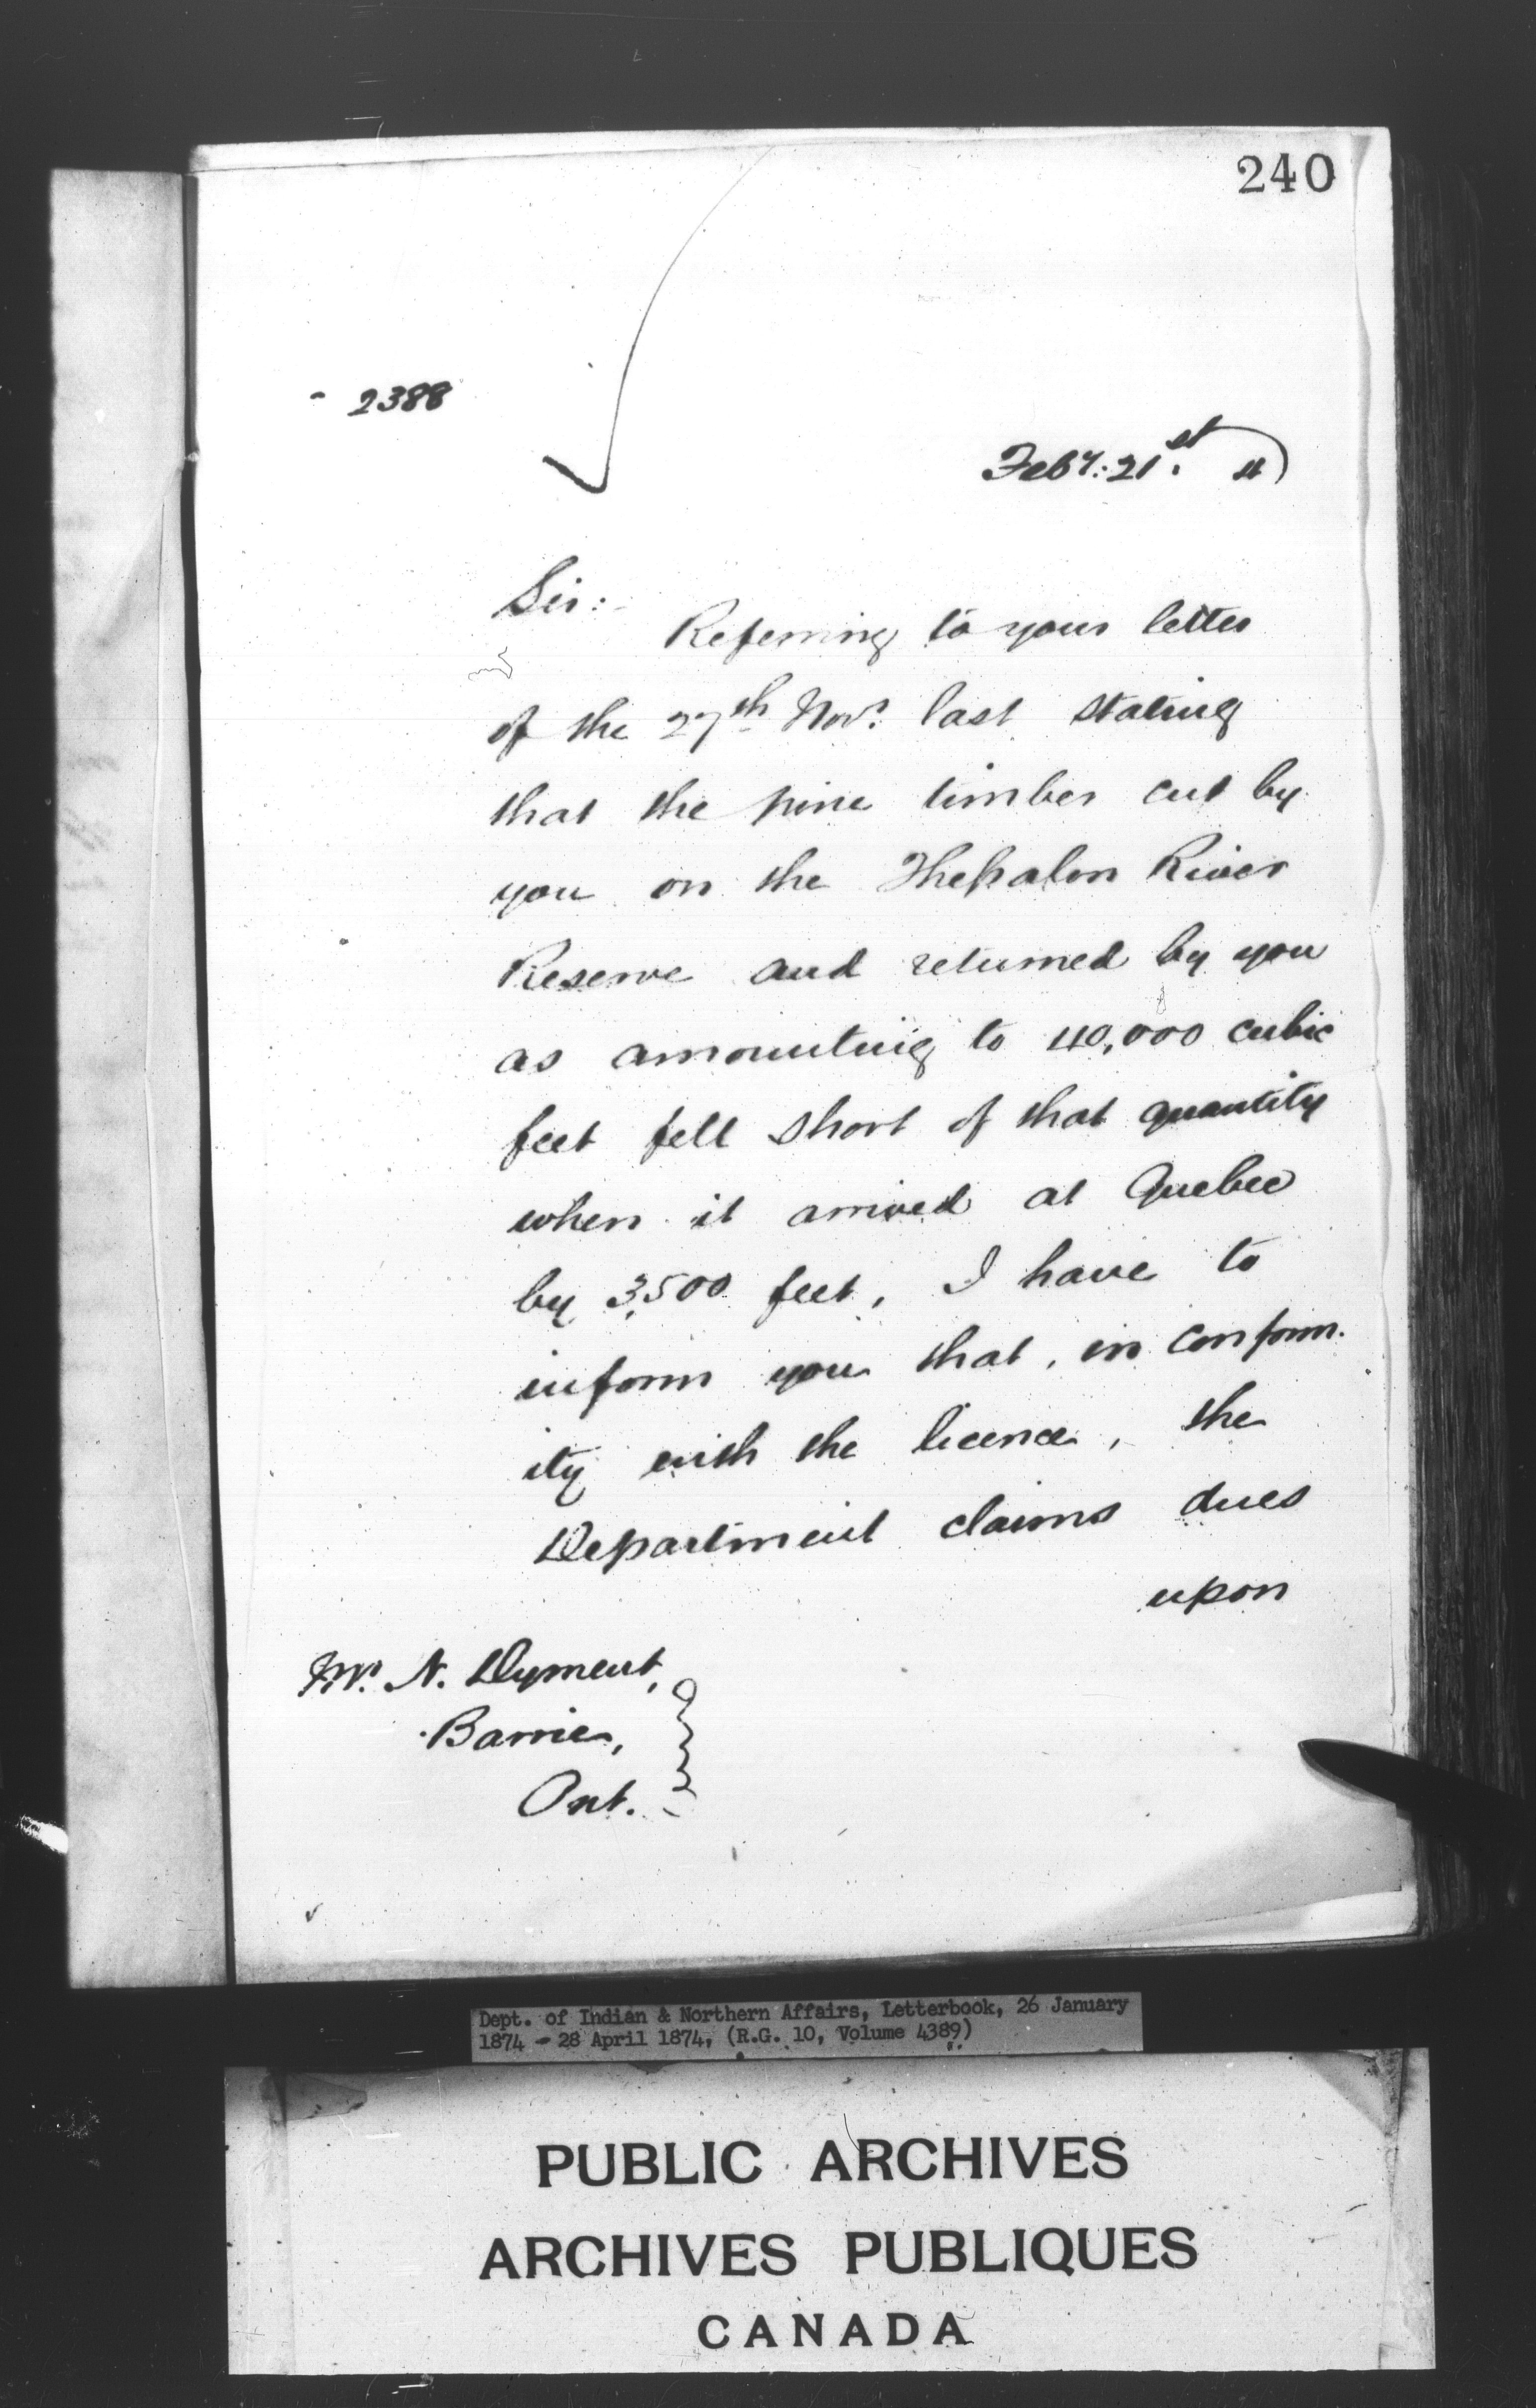 240
2388
Feby: 21st. 4
Sir:-
Referring to your letter
of the 27th Novr. last stating
that the pine timber cut by
you on the Thepalon River
Reserve and returned by you
as amounting to 40,000 cubic
feet fell short of that quantity
when it arrived at Quebec
by 3,500 feet, I have to
inform you that, in conform-
ity with the licence, the
Department claims dues
upon
Mr. N. Dyment,
Barrie,
Ont.
Dept. of Indian & Northern Affairs, Letterbook, 26 January
1874 - 28 April 1874, (R.G. 10, Volume 4389)
PUBLIC ARCHIVES
ARCHIVES PUBLIQUES
CANADA